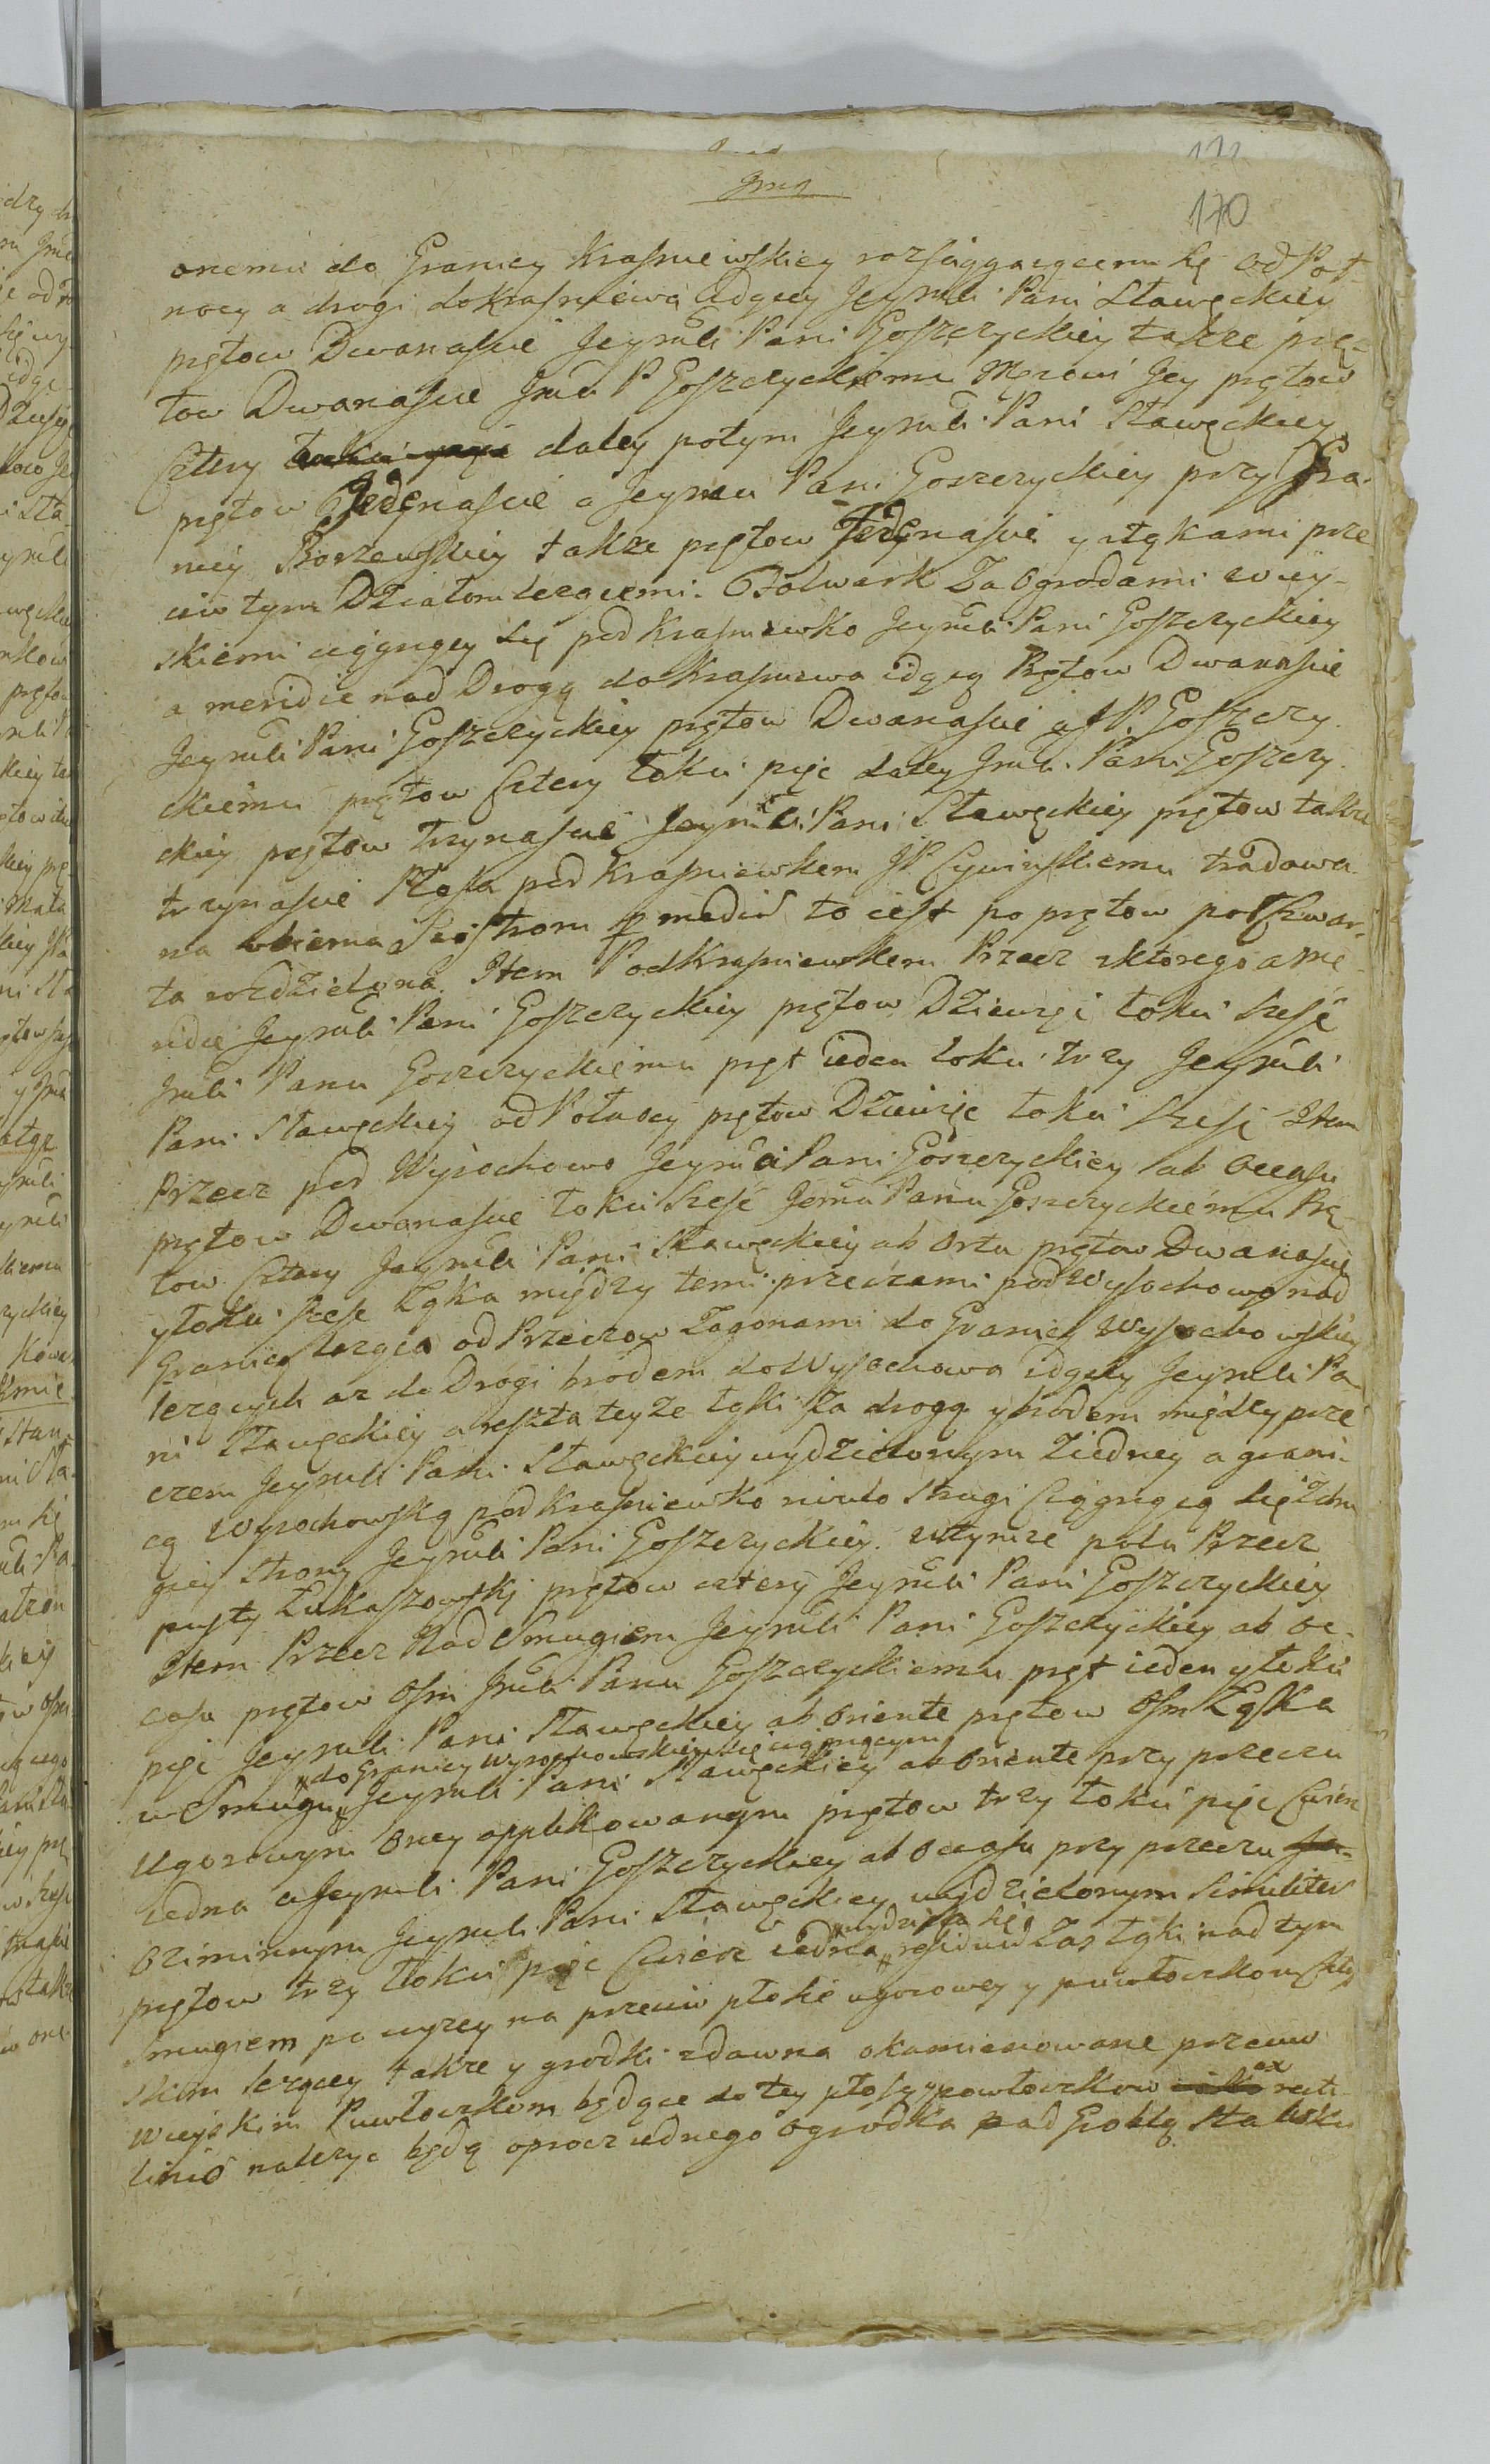 171
170
onemu do Granicy Krasniewskiey rozsiągaiącemu się od Poł-
nocy a drogi do Krasniewa idącey Jeymci Pani Sławęckiey
prętow Dwanascie Jeymci Pani Goszczyckiey także prę-
tow Dwanascie Jmci P Goszczyckiemu Męzowi Jey prętow
Cztery daley potym Jeymci Pani Sławęckiey
prętow Jedęnascie a Jeymci Pani Goszczyckiey przy Gra-
nicy Borzewskiey także prętow Jedęnascie y łąkami prze
ciw tym Działom lezącemi. Folwark Za Ogrodami wiey-
skiemi ciągnący się pod Krasniewko Jeymci Pani Goszczyckiey
a meridie nad Drogą do Krasniewa idącą Prętow Dwanascie
Jeymci Pani Goszczyckiey prętow Dwanascie a JP. Goszczy-
ckiemu prętow Cztery łokci pięc daley Jmci Pani Goszczy-
ckiey prętow trzynascie Jeymci Pani Sławęckiey prętow także
trzynascie Płosa pod Krasniewkem JP Cywinskiemu tradowa-
na obiema Siostrom p medium to iest po prętow połczwar-
ta rozdzielona. Item Pod Krasniewkem Przecz z ktorego a me-
ridie Jeymci Pani Goszczyckiey prętow Dziewięc łokci szesc
Jmci Panu Goszczyckiemu pręt ieden łokci trzy Jeymci
Pani Sławęckiey od Połnocy prętow Dziewięc łokci Szesc Item
Przecz pod Wysochowo Jeymci Pani Goszczyckiey ab Occasu
prętow Dwanascie łokci szesc Jemci Panu Goszczyckiemu Prę-
tow Cztery Jeymci Pani Sławęckiey ab Ortu prętow Dwanascie
y łokci szesc Łąka między temi przeczami pod Wysochowo nad
Granicą leząca od Przeczow Zagonami do Granicy Wysochowskiey
lezących az do Drogi brodem do Wysochowa idącey Jeymci Pa-
ni Sławęckiey a reszta teyze łąki za drogą y brodem między prze
czem Jeymci Pani Sławęckiey wydzielonym z iedney a grani-
cą Wysochowską pod Krasniewko Strugi Ciągnącą się z dru
giey strony Jeymci Pani Goszczyckiey. Wtymze polu Przecz
pusty Łukaszowski prętow cztery Jeymci Pani Goszczyckiey
Item Przecz Nad Smugiem Jeymci Pani Goszczyckiey ab oc-
casu prętow osm Jmci Panu Goszczyckiemu pręt ieden y łokci
pięc Jeymci Pani Sławęckiey ab oriente prętow osm Łąska
do Granicy Wysochowskiey się ciągnącym
w Smugu Jeymci Pani Sławęckiey ab oriente przy przeczu
Ugorowym oney applikowanym prętow trzy łokci pięc Cwierc
iedna a Jeymci Pani Goszczyckiey ab Occasu przy przeczu
oziminnym Jeymci Pani Sławęckiey wydzielonym similiter
wydziela się
prętow trzy łokci pięc Cwierc iedna residuū zas łąki nad tym
Smugiem po wyzey na przeciw płosie ugorowey y pawłoczkow
skim lezącey także y grodki zdawna okamienowane przeciw
wieyskim Pawłoczkom będące do tey płosy y pawłoczkow ex recti-
linio nalezyc będą oprocz iednego ogrodka pod Groblą stawsku